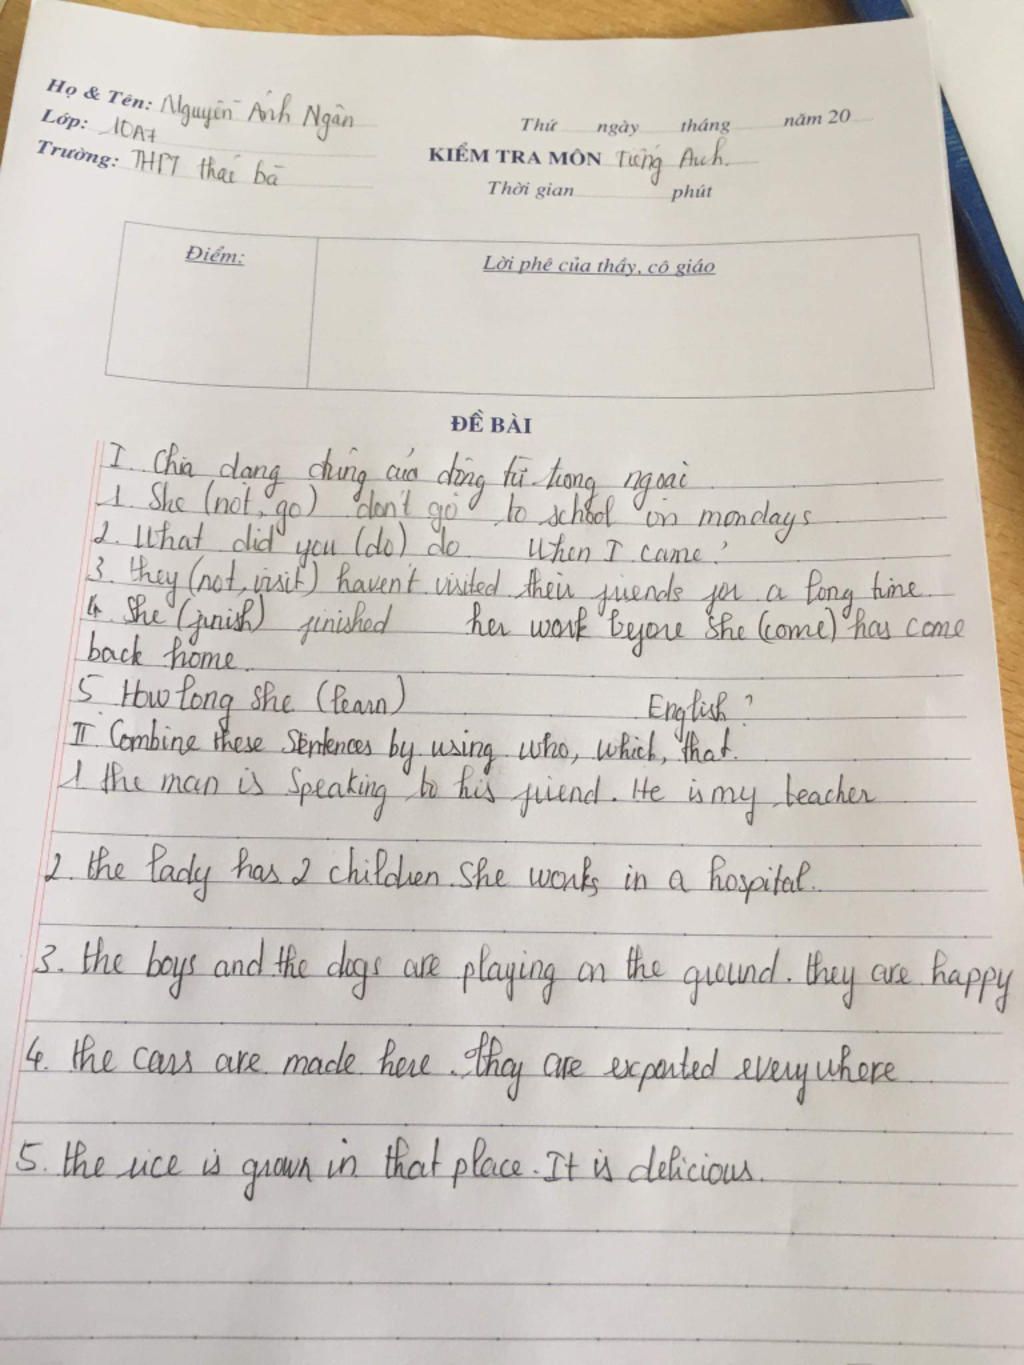 Họ & Tên: Nguyễn Ánh Ngân
Lớp: 10A7
Trường: THPT thái bã
Thứ ngày tháng năm 20
KIỂM TRA MÔN Tiếng Anh.
Thời gian phút
Điểm:
Lời phê của thầy, cô giáo
ĐỀ BÀI
I. Chia dạng đúng của động từ trong ngoài
1. She (not, go) don't go to school on mondays
2. What did you (do) do When I came?
3. they (not, visit) haven't visited their friends for a long time
4. She (finish) finished her work before she (come) has come
back home.
5 How long she (learn) English?
II. Combine these Sentences by using who, which, that.
1. the man is speaking to his friend. He is my teacher
2. the lady has 2 children. She works in a hospital.
3. the boys and the dogs are playing on the ground. they are happy
4. the cars are made here. they are exported everywhere
5. the rice is grown in that place. It is delicious.